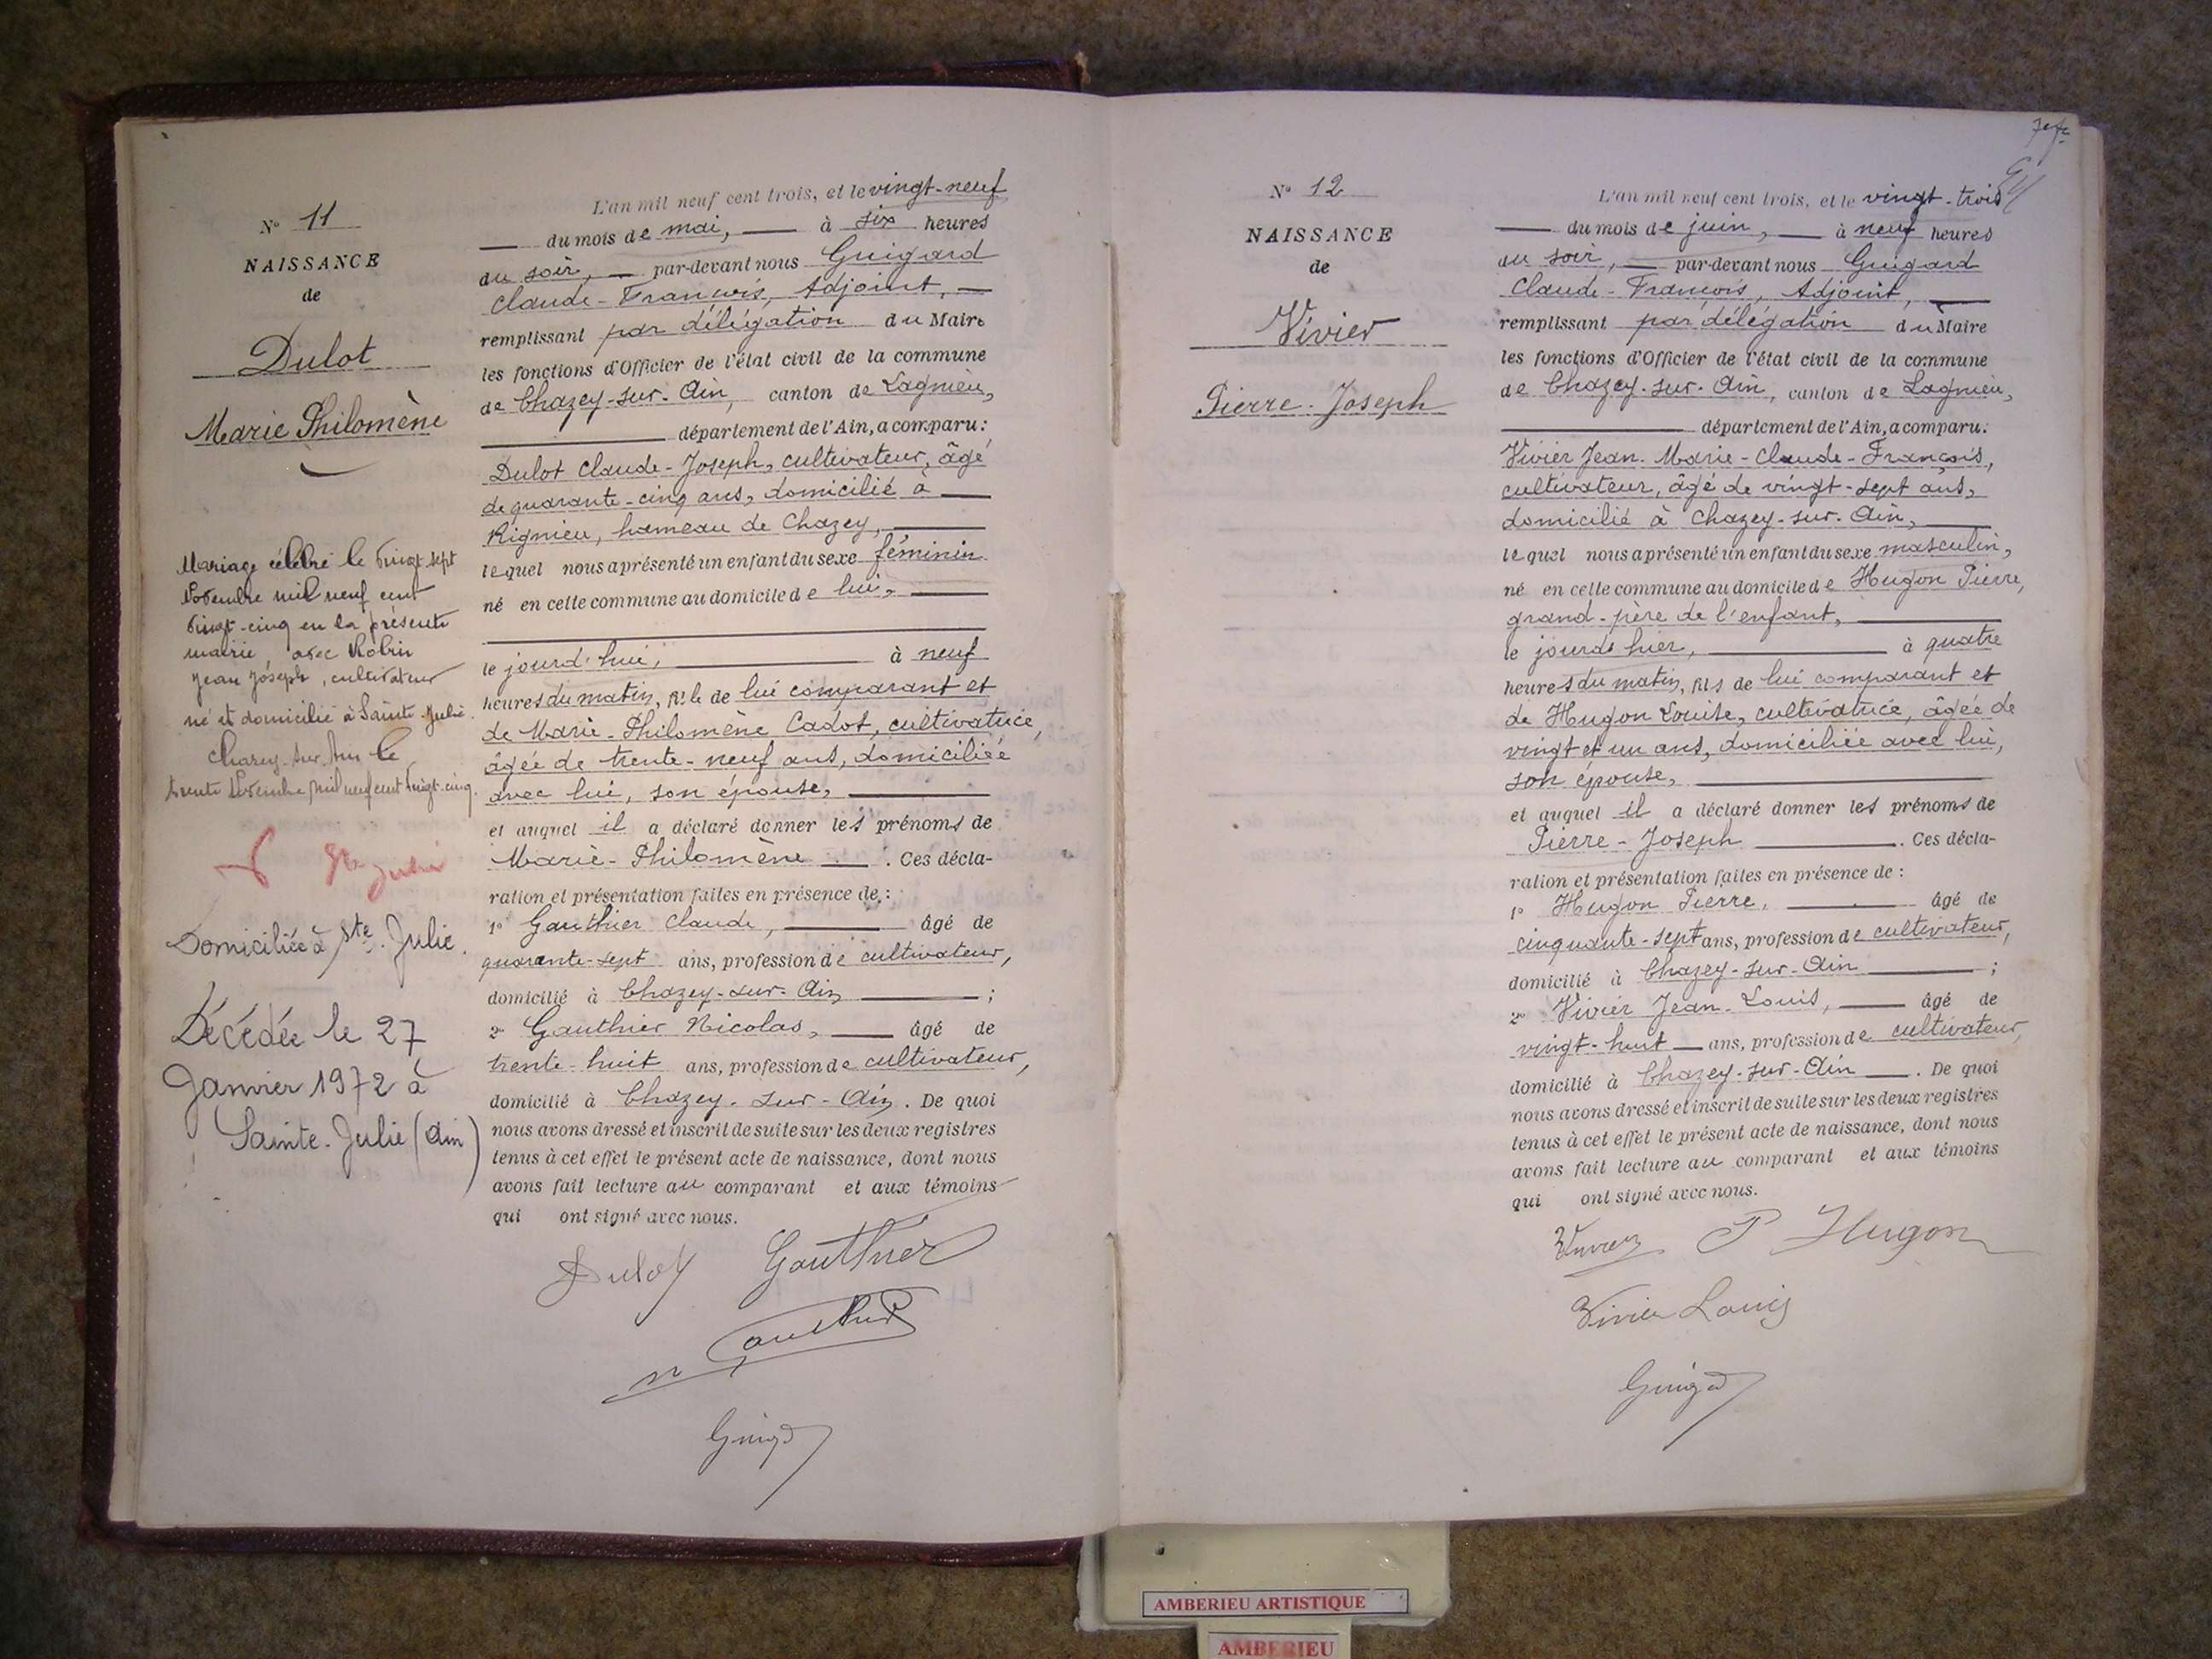 N° 11
NAISSANCE
de
Dulot
Marie Philomène
Mariage célébré le vingt-sept
Novembre mil neuf cent
vingt-cinq en la présente
mairie, avec Robin
Jean Joseph, cultivateur
né et domicilié à Sainte-Julie.
Chazey-sur-Ain le
trente Novembre mil neuf cent vingt-cinq.
Ste Julie
Domiciliée à Ste. Julie.
Décédée le 27
Janvier 1972 à
Sainte-Julie (Ain)
L'an mil neuf cent trois, et le vingt-neuf
du mois de mai, à six heures
du soir, par-devant nous Guigard
Claude-François, Adjoint,
remplissant par délégation du Maire
les fonctions d'Officier de l'état civil de la commune
de Chazey-sur-Ain, canton de Lagnieu,
département de l'Ain, a comparu:
Dulot Claude-Joseph, cultivateur, âgé
de quarante-cinq ans, domicilié à
Rignieu, hameau de Chazey,
lequel nous a présenté un enfant du sexe féminin
né en cette commune au domicile de lui,
le jourd'hui, à neuf
heures du matin, fille de lui comparant et
de Marie-Philomène Cadot, cultivatrice,
âgée de trente-neuf ans, domiciliée
avec lui, son épouse,
et auquel il a déclaré donner les prénoms de
Marie-Philomène. Ces décla-
ration et présentation faites en présence de:
1° Gauthier Claude, âgé de
quarante-sept ans, profession de cultivateur,
domicilié à Chazey-sur-Ain ;
2° Gauthier Nicolas, âgé de
trente-huit ans, profession de cultivateur,
domicilié à Chazey-sur-Ain. De quoi
nous avons dressé et inscrit de suite sur les deux registres
tenus à cet effet le présent acte de naissance, dont nous
avons fait lecture au comparant et aux témoins
qui ont signé avec nous.
Dulot Gauthier
Gauthier
n
Guigard
N° 12
NAISSANCE
de
Vivier
Pierre-Joseph
L'an mil neuf cent trois, et le vingt-trois
du mois de juin, à neuf heures
du soir, par-devant nous Guigard
Claude-François, Adjoint,
remplissant par délégation du Maire
les fonctions d'Officier de l'état civil de la commune
de Chazey-sur-Ain, canton de Lagnieu,
département de l'Ain, a comparu:
Vivier Jean-Marie-Claude-François,
cultivateur, âgé de vingt-sept ans,
domicilié à Chazey-sur-Ain,
lequel nous a présenté un enfant du sexe masculin,
né en cette commune au domicile de Hugon Pierre,
grand-père de l'enfant,
le jour d'hier, à quatre
heures du matin, fils de lui comparant et
de Hugon Louise, cultivatrice, âgée de
vingt et un ans, domiciliée avec lui,
son épouse,
et auquel il a déclaré donner les prénoms de
Pierre-Joseph. Ces décla-
ration et présentation faites en présence de:
1° Hugon Pierre, âgé de
cinquante-sept ans, profession de cultivateur,
domicilié à Chazey-sur-Ain ;
2° Vivier Jean-Louis, âgé de
vingt-huit ans, profession de cultivateur,
domicilié à Chazey-sur-Ain. De quoi
nous avons dressé et inscrit de suite sur les deux registres
tenus à cet effet le présent acte de naissance, dont nous
avons fait lecture au comparant et aux témoins
qui ont signé avec nous.
Vivier P Hugon
Vivier Louis
Guigard
AMBERIEU ARTISTIQUE
AMBERIEU